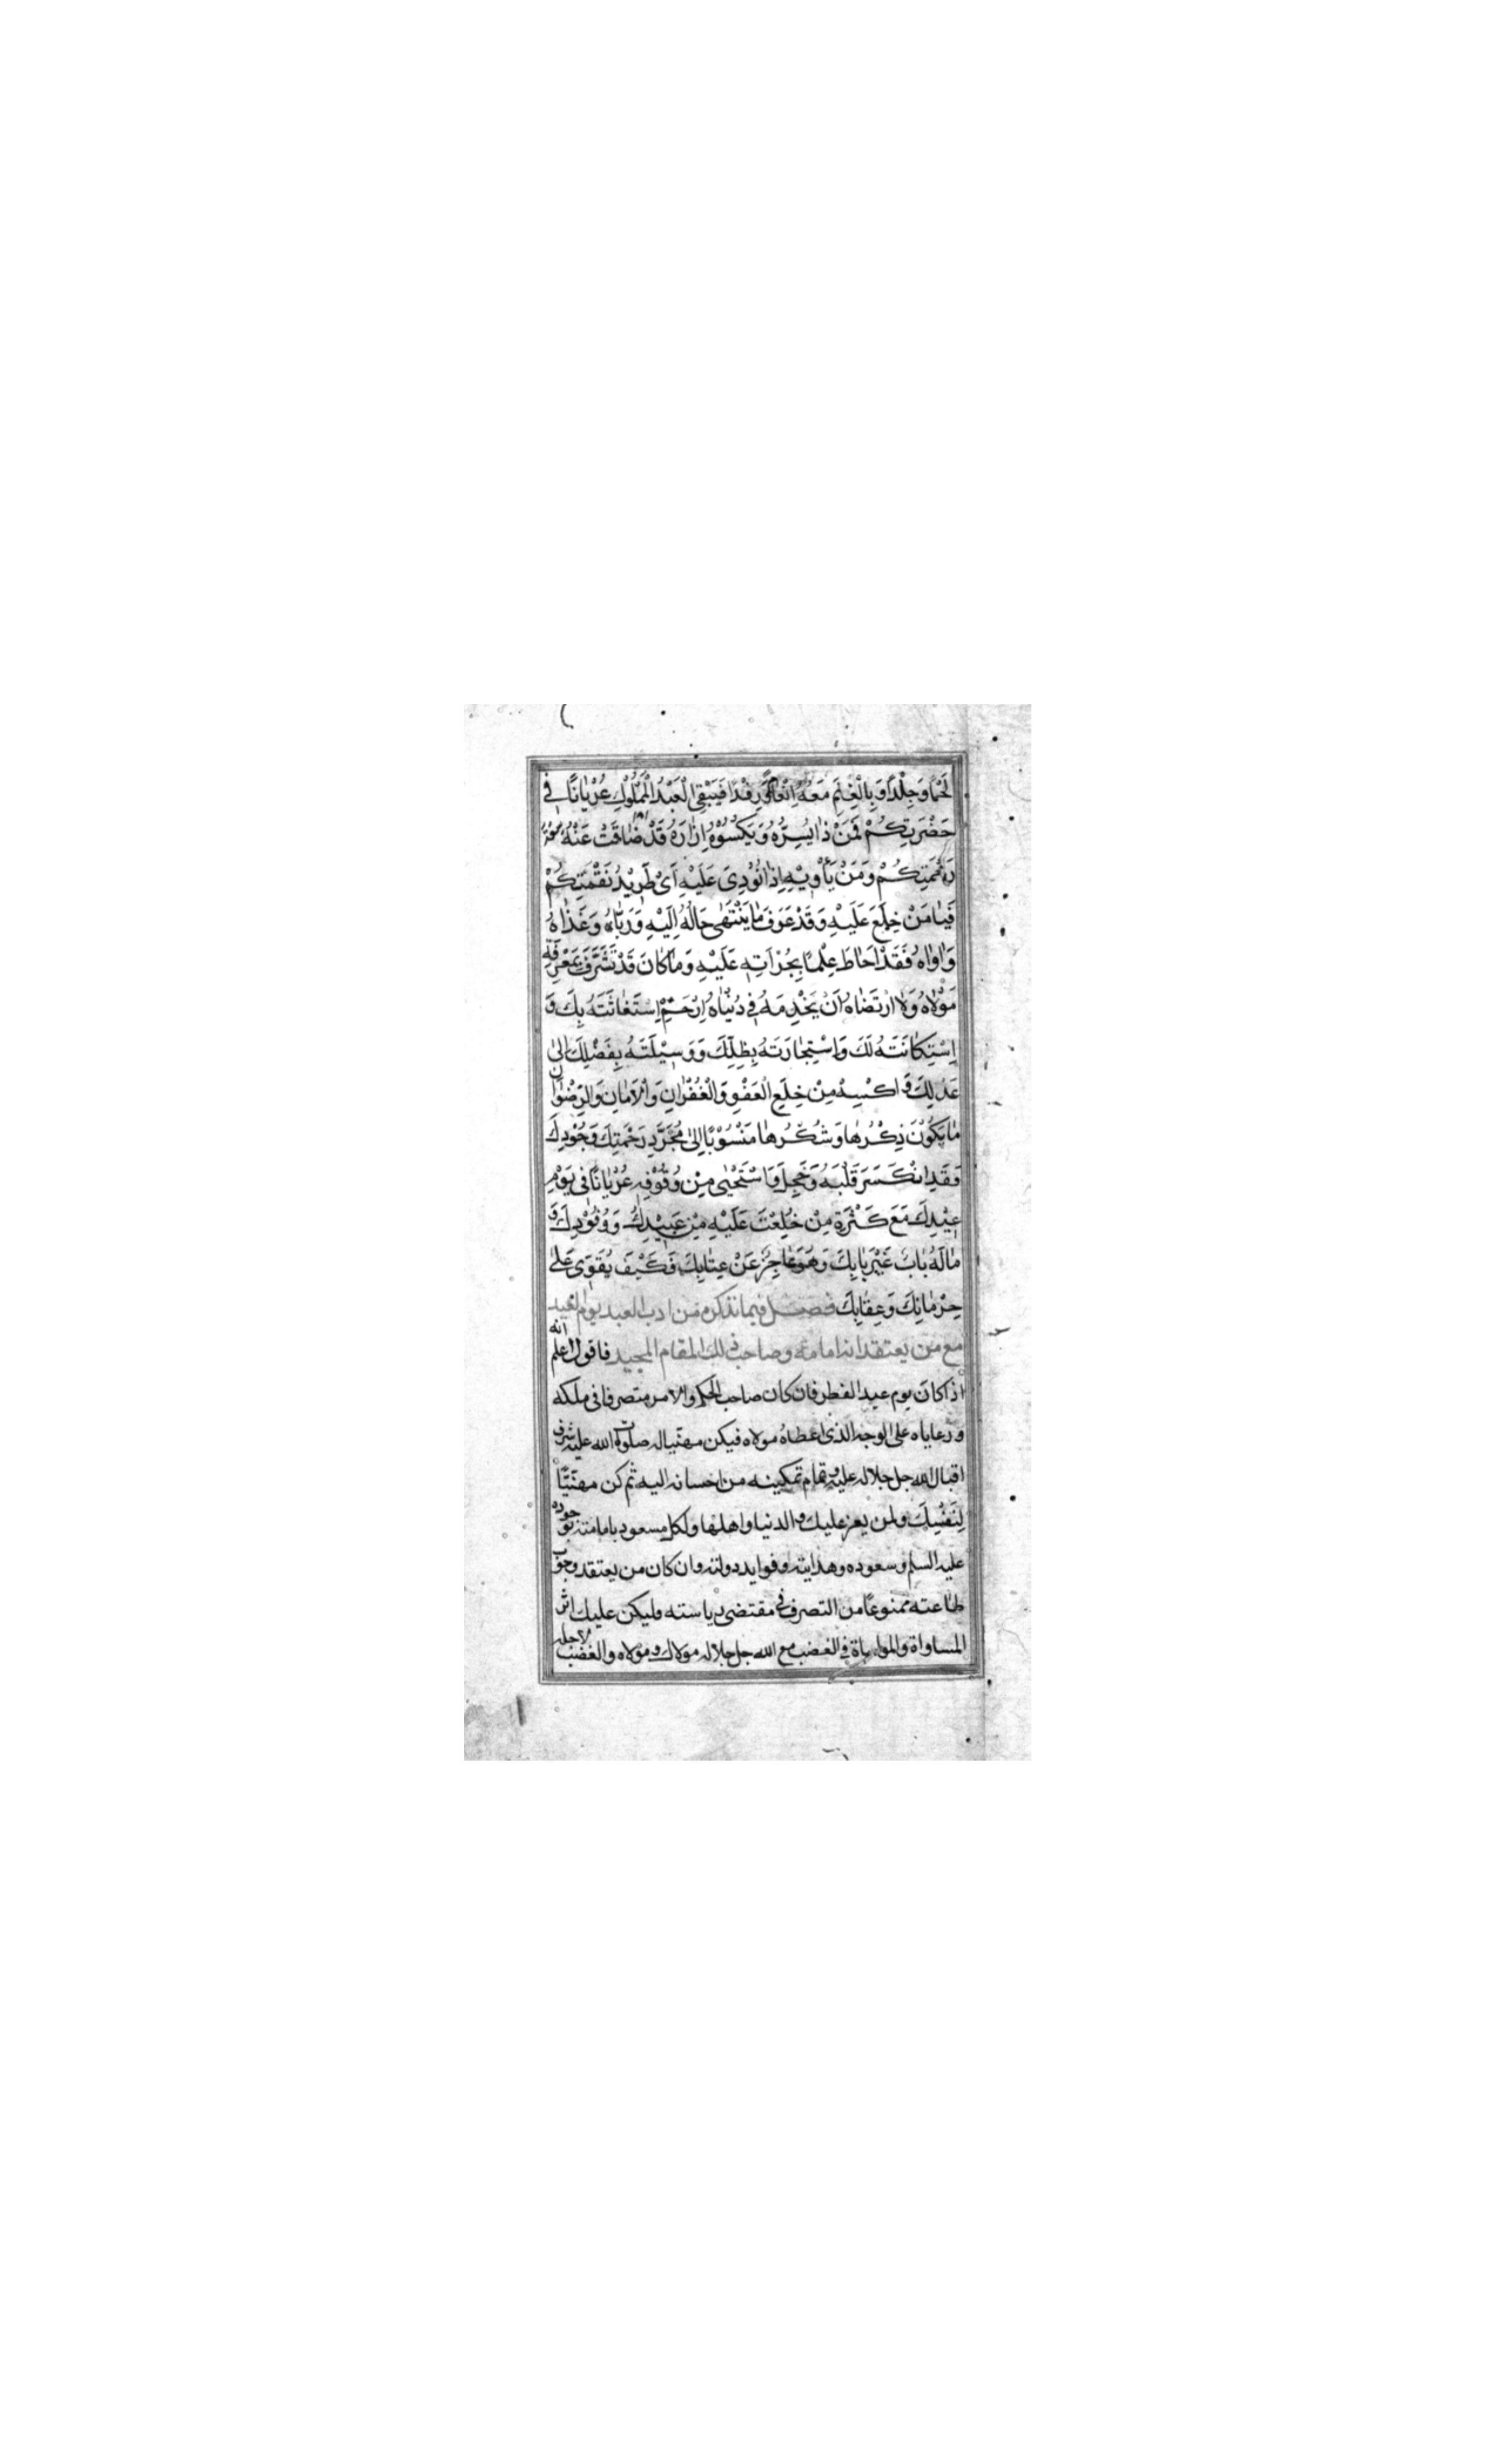 لَحْمًا وَجِلْدًا وَبِالْعِلْمِ مَعَهُ اِنْعَامًا وَرِفْدًا فَيَبْقِى الْعَبْدُ الْمَمْلُوكُ عُرْيٰانًا فِي
حَضْرَتِكُمْ فَمَنْ ذَا يَسْتُرُهُ وَيَكْسُوْهُ اِذَا رَهُ قَدْ ضَاقَتْ عَنْهُ سَعَةُ
رَحْمَتِكُمْ وَمَنْ يَأْوِيهِ اِذَا نُوْدِىَ عَلَيْهِ اَىْ طَرِيْدُ نَقْمَتِكُمْ
فَيٰا مَنْ خَلَعَ عَلَيْهِ وَقَدْ عَرَفَ مٰا يَنْتَهٰى حٰالُهُ اِلَيْهِ وَرَبَّاهُ وَغَذٰاهُ
وَاٰوٰاهُ فَقَدْ اَحٰاطَ عِلْمًا بِجُرْاَتِهِ عَلَيْهِ وَمٰا كٰانَ قَدْ تَشَرَّفَ بِمَعْرِفَةِ
مَوْلٰاهُ وَلَا ارْتَضٰاهُ اَنْ يَخْدِمَهُ فِي دُنْيٰاهُ اِرْحَمْ اِسْتِغٰاثَتَهُ بِكَ وَ
اِسْتِكٰانَتَهُ لَكَ وَاسْتِجٰارَتَهُ بِظِلِّكَ وَوَسِيْلَتَهُ بِفَضْلِكَ اِلىٰ
عَدْلِكَ وَاكْسِهْ مِنْ خِلَعِ الْعَفْوِ وَالْغُفْرٰانِ وَالْاَمٰانِ وَالرِّضْوٰانِ
مٰا يَكُوْنُ ذِكْرُهٰا وَشُكْرُهٰا مَنْسُوْبًا اِلىٰ مُجَرَّدِ رَحْمَتِكَ وَجُوْدِكَ
فَقَدِ انْكَسَرَ قَلْبُهُ وَخَجِلَ وَاسْتَحْيٰى مِنْ وُقُوْفِهِ عُرْيٰانًا فِي يَوْمِ
عِيْدِكَ مَعَ كَثْرَةِ مَنْ خُلِعْتَ عَلَيْهِ مِنْ عَبِيْدِكَ وَوُفُوْدِكَ وَ
مٰا لَهُ بٰابٌ غَيْرَ بٰابِكَ وَهُوَ عٰاجِزٌ عَنْ عِتٰابِكَ فَكَيْفَ يُقَوّى عَلىٰ
حِرْمٰانِكَ وَعِقٰابِكَ فصل فيما نذكره من ادب العبد يوم العيد
مع من يعتقد انه امامه وصاحب ذلك المقام المجيد فاقول اعلم انه
اذا كان يوم عيد الفطر فان كان صاحب الحكم والامر متصرفا فى ملكه
ورعاياه على الوجه الذى اعطاه مولاه فيكن مهنيا له صلوات الله عليه بشرف
اقبال الله جل جلاله عليه وتمام تمكينه من احسانه اليه ثم كن مهنّيًا
لِنَفْسِكَ ولمن يعز عليك وللدنيا واهلها ولكل مسعود بامامته بوجوده
عليه السلم وسعوده وهدايته وفوايد دولته وان كان من يعتقد وجوب
طاعته ممنوعًا من التصرف فى مقتضى رياسته فليكن عليك اثر
المساواة والمواساة فى الغضب مع الله جل جلاله مولاك ومولاه والغضب لاجله